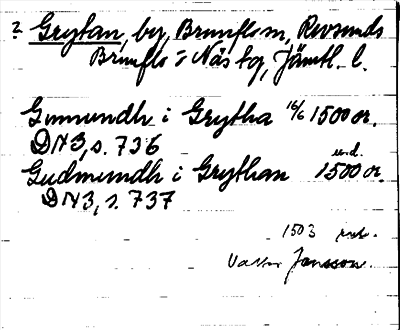 ? Grytan, by, Brunflo sn, Revsunds
Brunflo o Näs tg, Jämtl. l.
Gunnundh i Grytha 16/6 1500 or.
DN 3, s. 736
Gudmundh i Grythan und. 1500 or.
DN 3, s. 737
1503
Valter Jansson